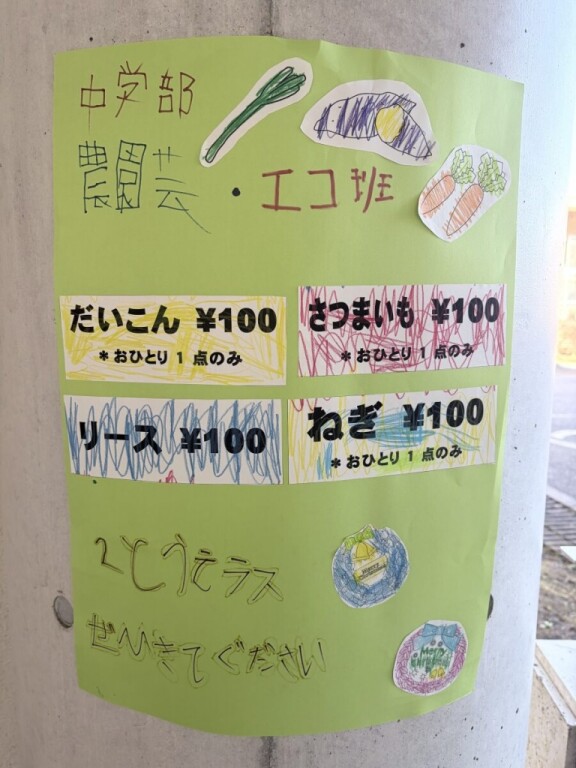 中学部
農園芸・エコ班
だいこん ¥100
*おひとり1点のみ
さつまいも ¥100
*おひとり1点のみ
リース ¥100
ねぎ ¥100
*おひとり1点のみ
2とうテラス
ぜひきてください
Merry